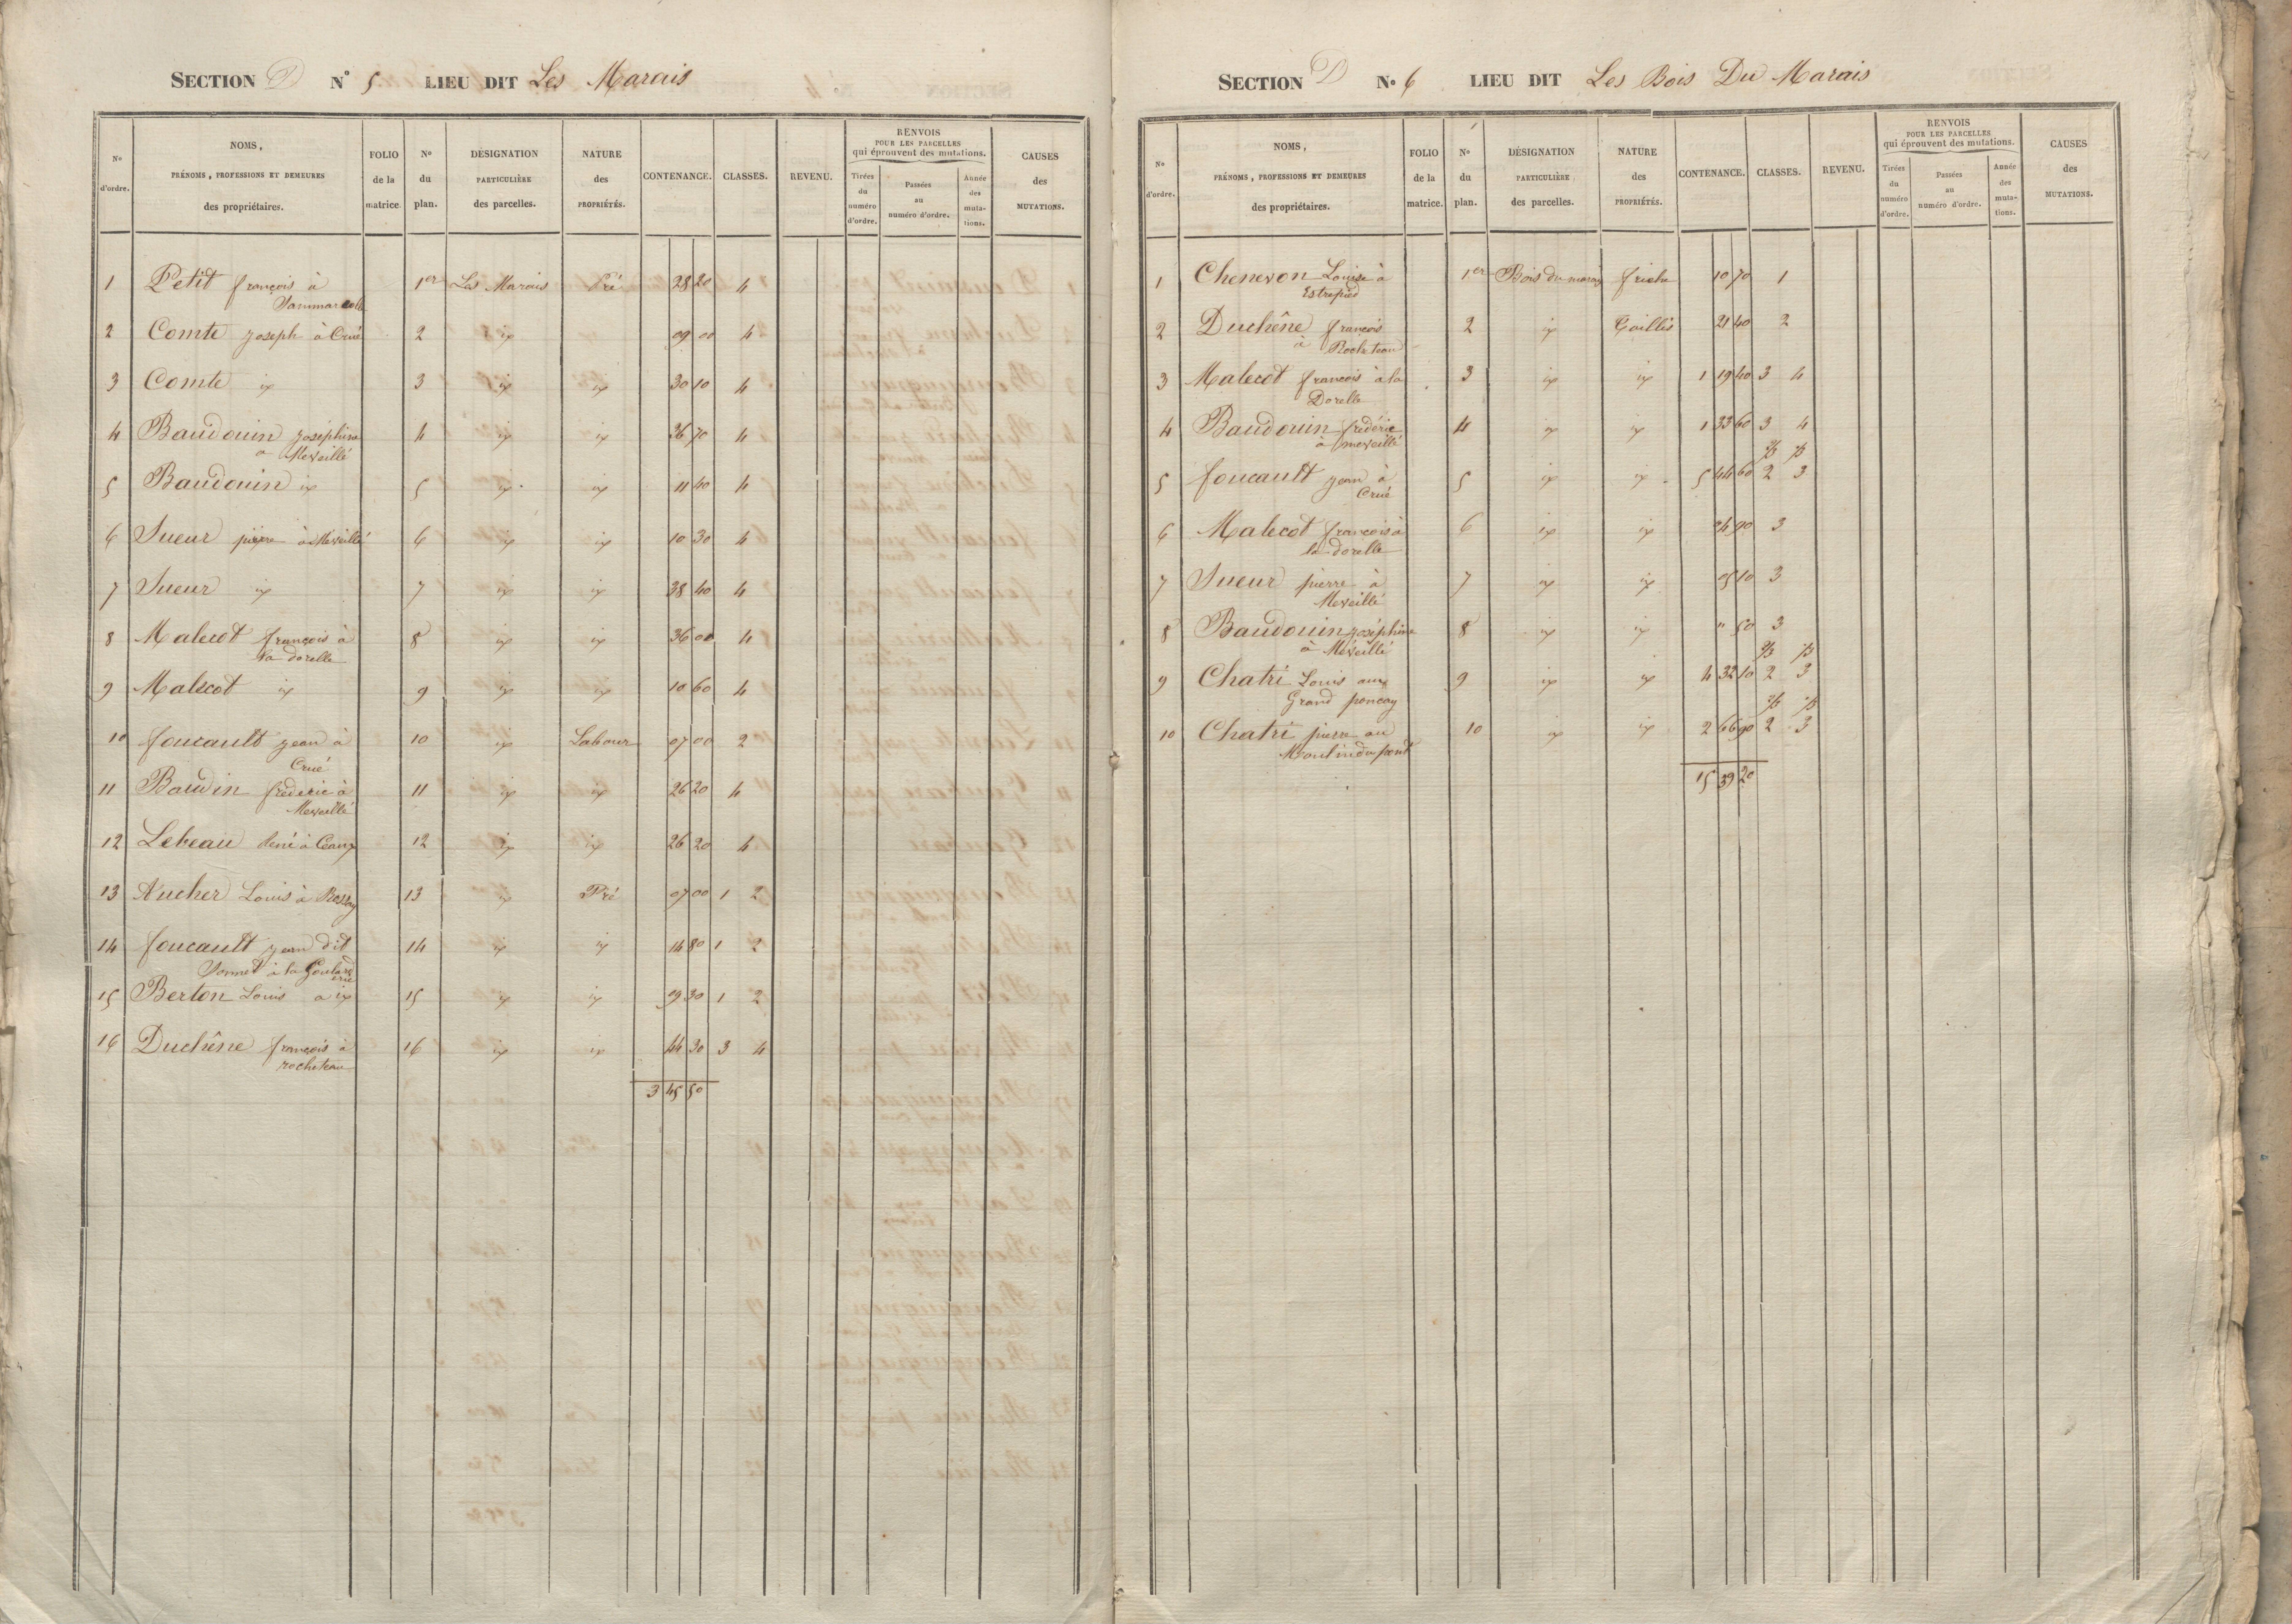 SECTION D N° 5 LIEU DIT Les Marais
N° d'ordre. NOMS, PRÉNOMS, PROFESSIONS ET DEMEURES des propriétaires. FOLIO de la matrice. N° du plan. DÉSIGNATION PARTICULIÈRE des parcelles. NATURE des PROPRIÉTÉS. CONTENANCE. CLASSES. REVENU. RENVOIS POUR LES PARCELLES qui éprouvent des mutations. Tirées du numéro d'ordre. Passées au numéro d'ordre. Année des mutations. CAUSES des MUTATIONS.
1 Petit françois à 1er Les Marais Pré 28 20 4
Sammarcolle
2 Comte joseph à Crué 2 ix 09 00 4
3 Comte ix 3 ix ix 30 10 4
4 Baudouin joséphine 4 ix ix 36 70 4
à Meveillé
5 Baudouin ix 5 ix ix 11 40 4
6 Sueur pierre à Meveillé 6 ix ix 10 30 4
7 Sueur ix 7 ix ix 38 40 4
8 Malecot françois à 8 ix ix 36 00 4
la dorelle
9 Malecot ix 9 ix ix 10 60 4
10 foucault jean à 10 ix Labour 07 00 2
Crué
11 Baudin fréderic à 11 ix ix 26 20 4
Meveillé
12 Lebeau René à Ceaux 12 ix ix 26 20 4
13 Aucher Louis à Rossay 13 ix Pré 07 00 1 2
14 foucault jean dit 14 ix ix 14 80 1 2
Sonnet à la Goularderie
15 Berton Louis a ix 15 ix ix 09 30 1 2
16 Duchêne françois à 16 ix ix 44 30 3 4
rocheteau
3 45 50
SECTION D No 6 LIEU DIT Les Bois Du Marais
N° d'ordre. NOMS, PRÉNOMS, PROFESSIONS ET DEMEURES des propriétaires. FOLIO de la matrice. N° du plan. DÉSIGNATION PARTICULIÈRE des parcelles. NATURE des PROPRIÉTÉS. CONTENANCE. CLASSES. REVENU. RENVOIS POUR LES PARCELLES qui éprouvent des mutations. Tirées du numéro d'ordre. Passées au numéro d'ordre. Année des mutations. CAUSES des MUTATIONS.
1 Chenevon Louise à 1er Bois du marais friche 10 70 1
Estrepied
2 Duchêne françois 2 ix Taillis 21 40 2
à Rocheteau
3 Malecot françois à la 3 ix ix 1 19 40 3 4
Dorelle
4 Baudouin frédéric 4 ix ix 1 33 60 3 4
à meveillé
2/3 1/3
5 foucault jean à 5 ix ix 5 44 60 2 3
Crué
6 Malecot françois à 6 ix ix 24 90 3
la dorelle
7 Sueur pierre à 7 ix ix 05 10 3
Meveillé
8 Baudouin joséphine 8 ix ix " 50 3
à Méveillé
2/3 1/3
9 Chatri Louis aux 9 ix ix 4 32 10 2 3
Grand poncay
2/3 1/3
10 Chatri pierre au 10 ix ix 2 66 90 2 3
Moulin du pont
15 39 20